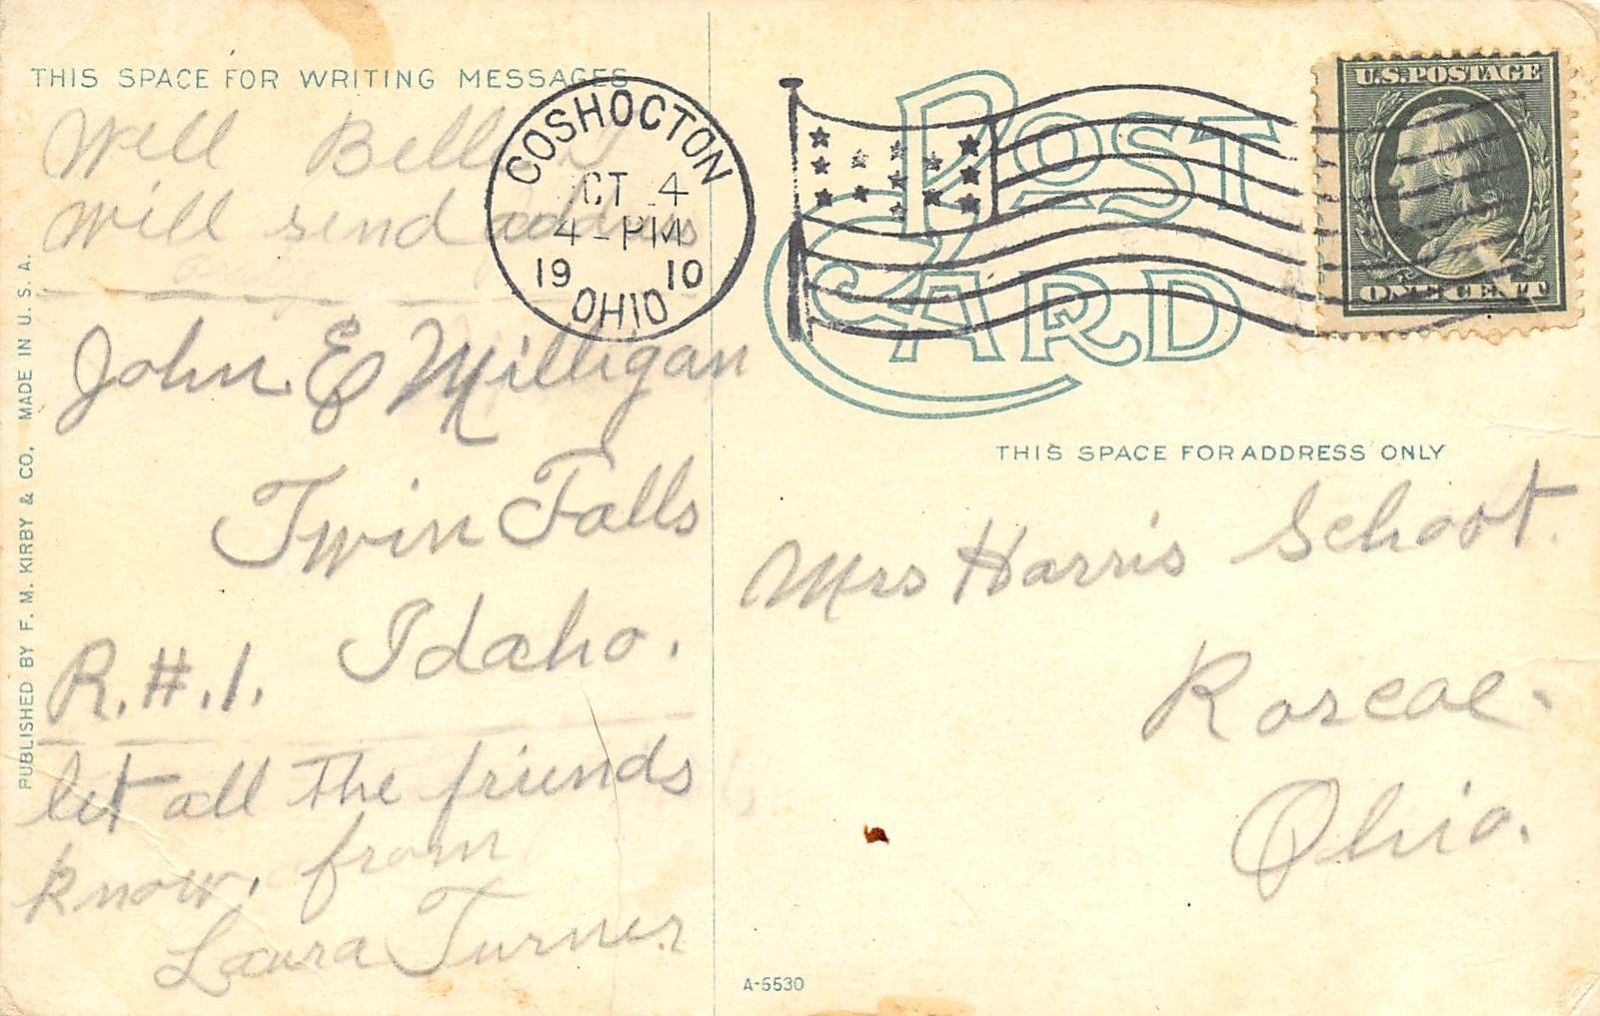 THIS SPACE FOR WRITING MESSAGES
Well Bell I
will send address
John E Milligan
Twin Falls
Idaho.
R.#.1.
let all the friends
know. from
Laura Turner
PUBLISHED BY F. M. KIRBY & CO. MADE IN U. S. A.
COSHOCTON
OCT 4
4-PM
19 10
OHIO
POST
CARD
U.S. POSTAGE
ONE CENT
THIS SPACE FOR ADDRESS ONLY
Mrs Harris Schoot.
Roscoe.
Ohio.
A-5530